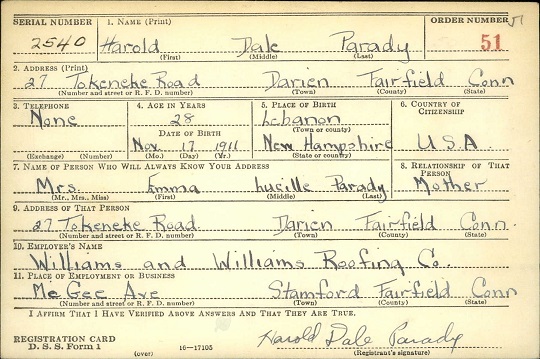 SERIAL NUMBER 1. NAME (Print) ORDER NUMBER
2540 Harold Dale Parady 51
(First) (Middle) (Last)
2. ADDRESS (Print)
27 Tokeneke Road Darien Fairfield Conn
(Number and street or R. F. D. number) (Town) (County) (State)
3. TELEPHONE 4. AGE IN YEARS 5. PLACE OF BIRTH 6. COUNTRY OF CITIZENSHIP
None 28 Lebanon
(Town or county)
DATE OF BIRTH
Nov 17 1911 New Hampshire U.S.A.
(Exchange) (Number) (Mo.) (Day) (Yr.) (State or country)
7. NAME OF PERSON WHO WILL ALWAYS KNOW YOUR ADDRESS 8. RELATIONSHIP OF THAT PERSON
Mrs. Emma Lucille Parady Mother
(Mr., Mrs., Miss) (First) (Middle) (Last)
9. ADDRESS OF THAT PERSON
27 Tokeneke Road Darien Fairfield Conn.
(Number and street or R. F. D. number) (Town) (County) (State)
10. EMPLOYER'S NAME
Williams and Williams Roofing Co.
11. PLACE OF EMPLOYMENT OR BUSINESS
McGee Ave Stamford Fairfield Conn
(Number and street or R. F. D. number) (Town) (County) (State)
I AFFIRM THAT I HAVE VERIFIED ABOVE ANSWERS AND THAT THEY ARE TRUE.
REGISTRATION CARD Harold Dale Parady
D. S. S. Form 1 (over) 16—17105 (Registrant's signature)